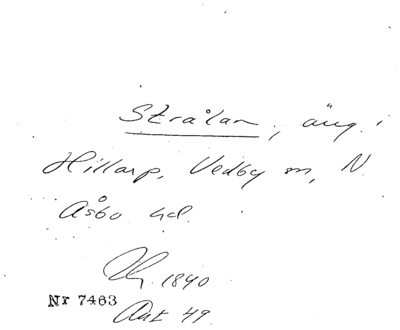 Strålan, äng i
Hillarp, Vedby sn, N
Åsbo hd.
1840
Nr 7463
Akt 49